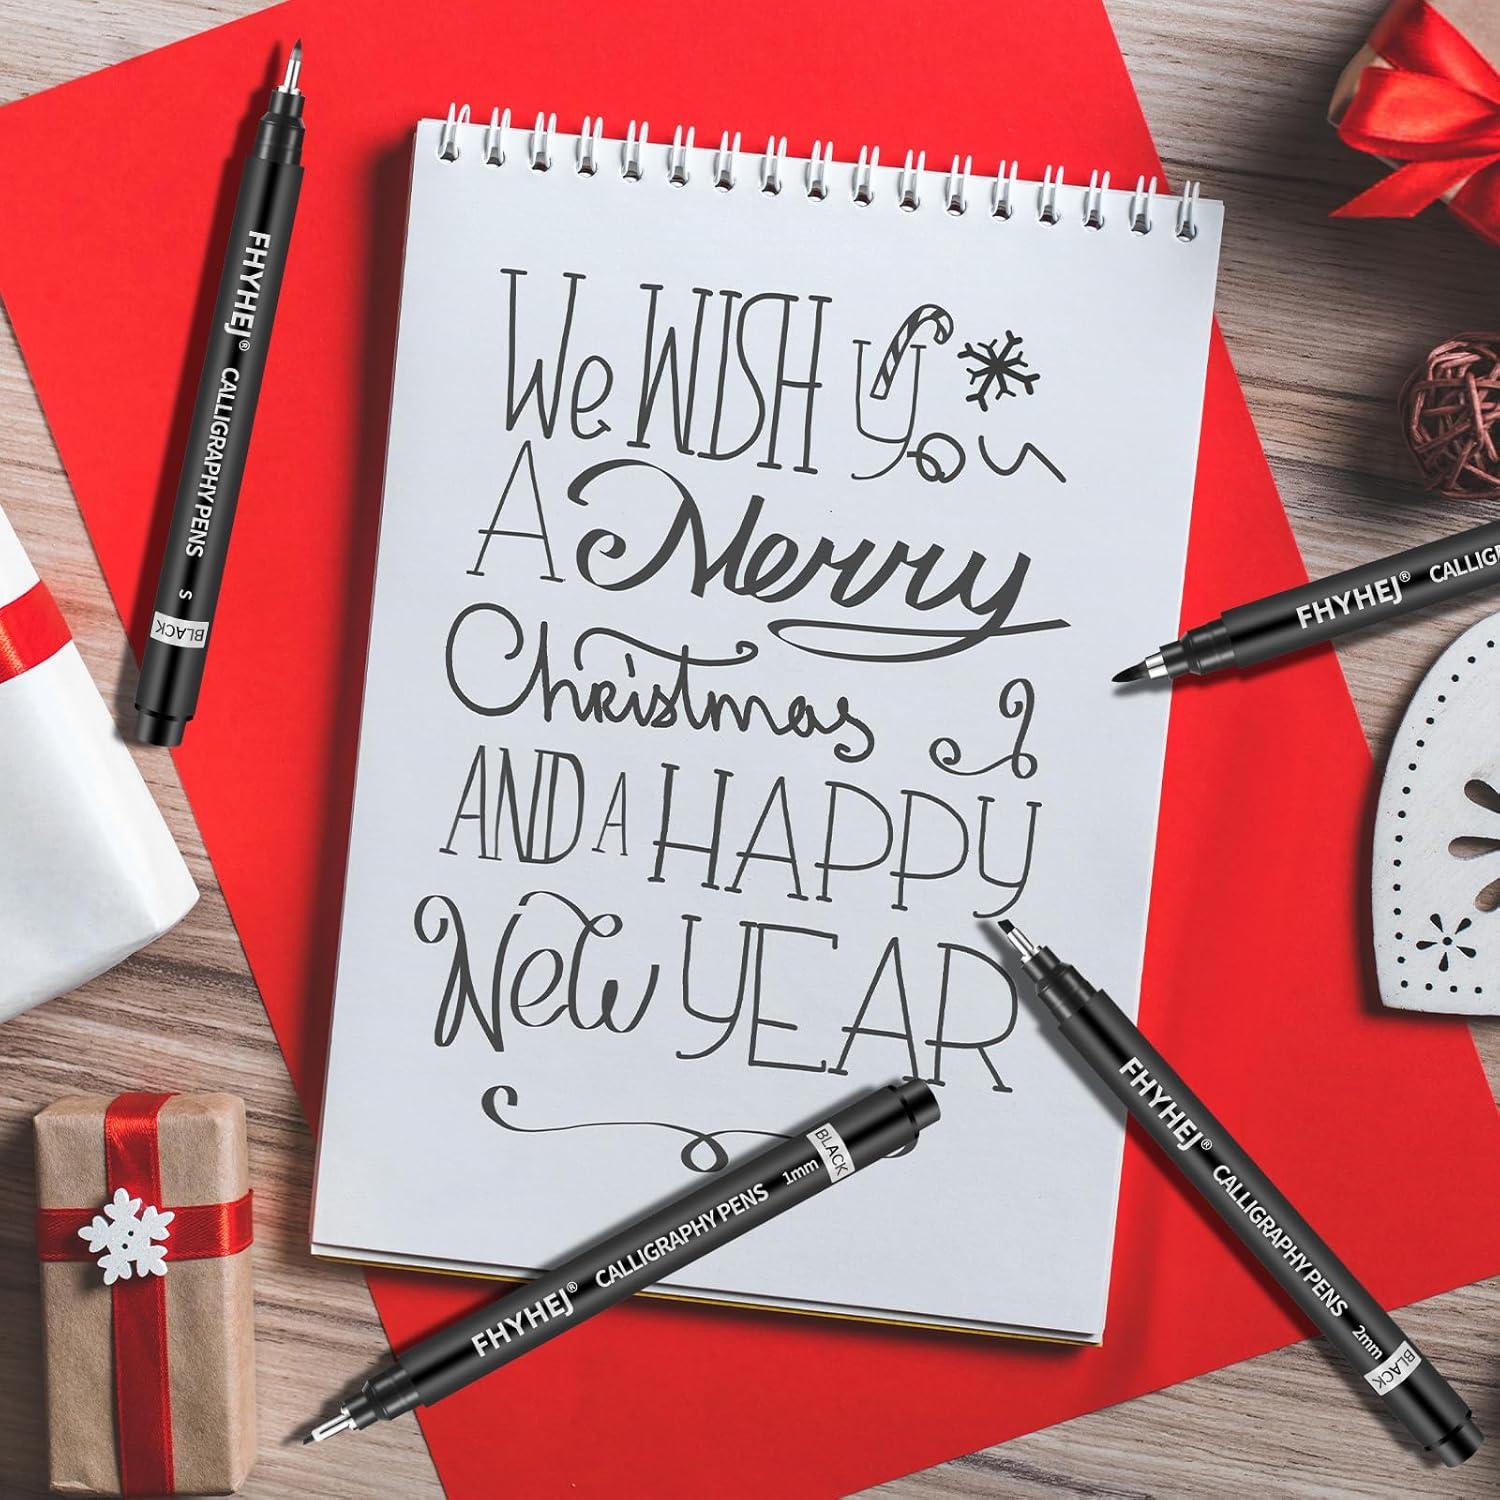 We WISH you
A Merry
Christmas
AND A HAPPY
New YEAR
FHYHEJ® CALLIGRAPHY PENS S BLACK
FHYHEJ® CALLIG
FHYHEJ® CALLIGRAPHY PENS 1mm BLACK
FHYHEJ® CALLIGRAPHY PENS 2mm BLACK